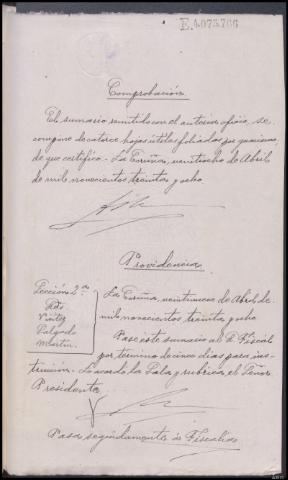 E.4.073.766
Comprobación
El sumario remitido con el anterior oficio, se
compone de catorce hojas útiles foliadas por guarismo,
de que certifico.- La Coruña, veintiocho de Abril
de mil novecientos treinta y ocho
Providencia
Sección 2ª
La Coruña, veintinueve de Abril de
mil novecientos treinta y ocho
Salgado
Martin.
Pase este sumario al Sr. Fiscal
por término de cinco días para ins-
trucción. Lo acordó la Sala y rubrica el Señor
Presidente.
Pasa seguidamente a Fiscalía